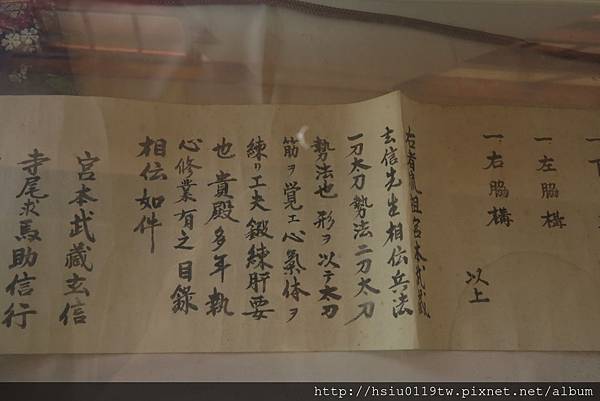 一 下
一 左脇構
一 右脇構
以上
右者流祖宮本武蔵
玄信先生相伝兵法
一刀太刀勢法二刀太刀
勢法也 形ヲ以テ太刀
筋ヲ覚エ心氣体ヲ
練リ工夫鍛練肝要
也 貴殿多年執
心修業有之目錄
相伝如件
宮本武蔵玄信
寺尾求馬助信行
http://hsiu0119tw.pixnet.net/album